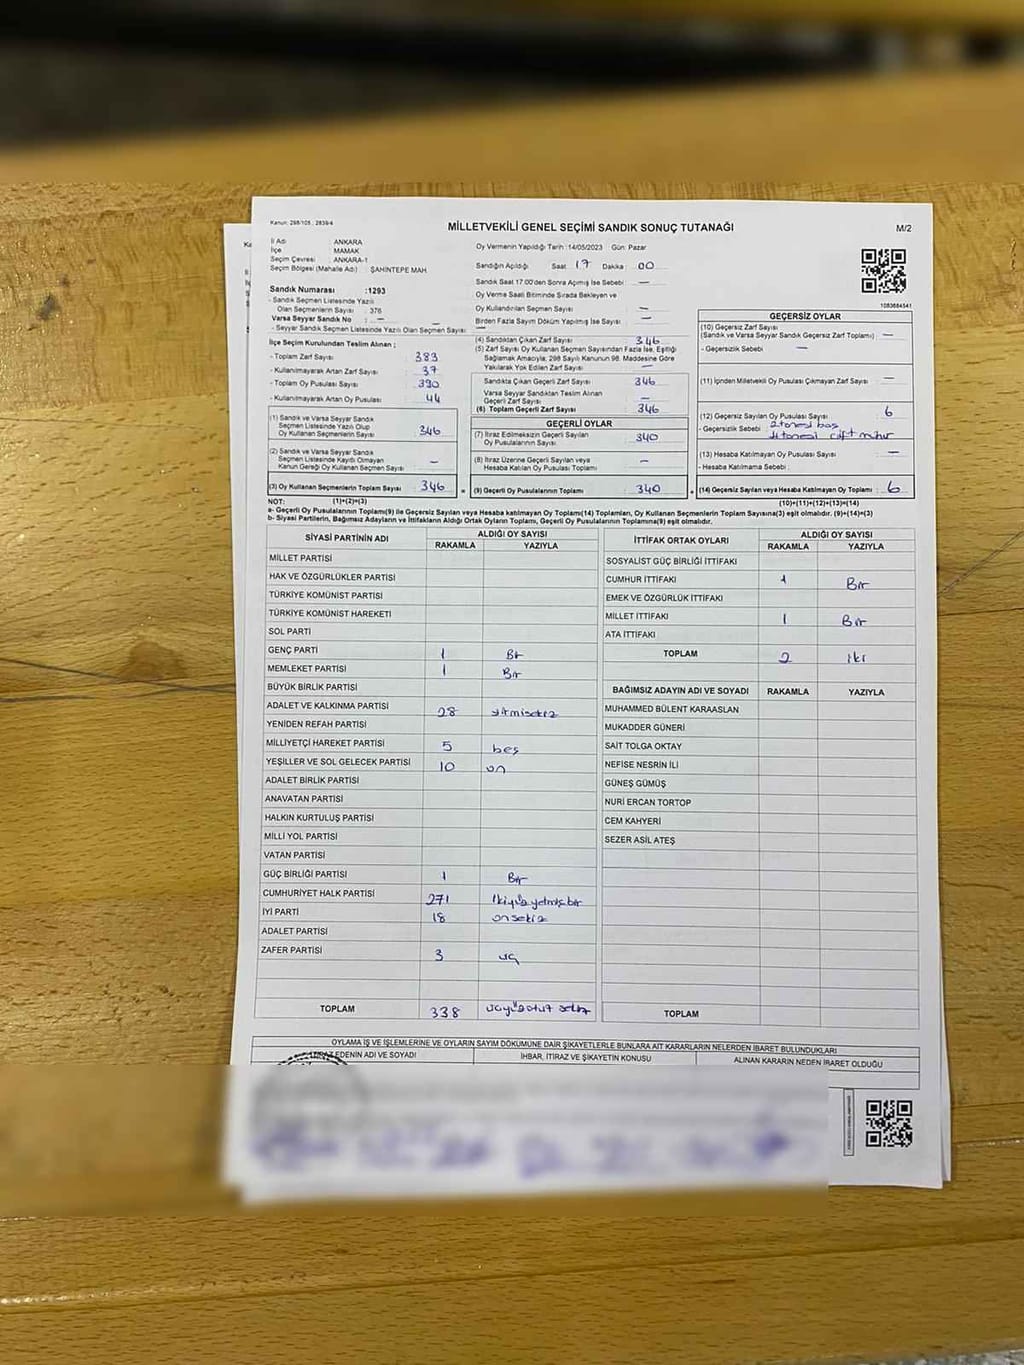 Kanun: 298/105 , 2839/4
MİLLETVEKİLİ GENEL SEÇİMİ SANDIK SONUÇ TUTANAĞI
M/2
İl Adı : ANKARA
İlçe : MAMAK
Seçim Çevresi : ANKARA-1
Seçim Bölgesi (Mahalle Adı) : ŞAHİNTEPE MAH
Sandık Numarası :1293
- Sandık Seçmen Listesinde Yazılı
Olan Seçmenlerin Sayısı : 376
Varsa Seyyar Sandık No : -
- Seyyar Sandık Seçmen Listesinde Yazılı Olan Seçmen Sayısı : -
İlçe Seçim Kurulundan Teslim Alınan ;
- Toplam Zarf Sayısı : 383
- Kullanılmayarak Artan Zarf Sayısı : 37
- Toplam Oy Pusulası Sayısı : 390
- Kullanılmayarak Artan Oy Pusulası : 44
(1) Sandık ve Varsa Seyyar Sandık
Seçmen Listesinde Yazılı Olup
Oy Kullanan Seçmenlerin Sayısı : 346
(2) Sandık ve Varsa Seyyar Sandık
Seçmen Listesinde Kayıtlı Olmayan
Kanun Gereği Oy Kullanan Seçmen Sayısı : -
(3) Oy Kullanan Seçmenlerin Toplam Sayısı : 346
Oy Vermenin Yapıldığı Tarih :14/05/2023 Gün: Pazar
Sandığın Açıldığı Saat 17 Dakika : 00
Sandık Saat 17:00'den Sonra Açılmış İse Sebebi : -
Oy Verme Saati Bitiminde Sırada Bekleyen ve
Oy Kullandırılan Seçmen Sayısı : -
Birden Fazla Sayım Döküm Yapılmış İse Sayısı : -
(4) Sandıktan Çıkan Zarf Sayısı : 346
(5) Zarf Sayısı Oy Kullanan Seçmen Sayısından Fazla İse, Eşitliği
Sağlamak Amacıyla; 298 Sayılı Kanunun 98. Maddesine Göre
Yakılarak Yok Edilen Zarf Sayısı : -
Sandıkta Çıkan Geçerli Zarf Sayısı : 346
Varsa Seyyar Sandıktan Teslim Alınan
Geçerli Zarf Sayısı : -
(6) Toplam Geçerli Zarf Sayısı : 346
GEÇERLİ OYLAR
(7) İtiraz Edilmeksizin Geçerli Sayılan
Oy Pusulalarının Sayısı : 340
(8) İtiraz Üzerine Geçerli Sayılan veya
Hesaba Katılan Oy Pusulası Toplamı : -
= (9) Geçerli Oy Pusulalarının Toplamı : 340
1083684541
GEÇERSİZ OYLAR
(10) Geçersiz Zarf Sayısı
(Sandık ve Varsa Seyyar Sandık Geçersiz Zarf Toplamı) : -
- Geçersizlik Sebebi : -
(11) İçinden Milletvekili Oy Pusulası Çıkmayan Zarf Sayısı : -
(12) Geçersiz Sayılan Oy Pusulası Sayısı : 6
- Geçersizlik Sebebi : 2 tanesi boş
4 tanesi çift mühür
(13) Hesaba Katılmayan Oy Pusulası Sayısı : -
- Hesaba Katılmama Sebebi :
+ (14) Geçersiz Sayılan veya Hesaba Katılmayan Oy Toplamı : 6
NOT: (1)+(2)=(3) (10)+(11)+(12)+(13)=(14)
a- Geçerli Oy Pusulaları Toplamı(9) ile Geçersiz Sayılan veya Hesaba Katılmayan Oy Toplamı(14) Toplamları, Oy Kullanan Seçmenlerin Toplam Sayısına(3) eşit olmalıdır. (9)+(14)=(3)
b- Siyasi Partilerin, Bağımsız Adayların ve İttifakların Aldığı Ortak Oyların Toplamı, Geçerli Oy Pusulalarının Toplamına(9) eşit olmalıdır.
SİYASİ PARTİNİN ADI ALDIĞI OY SAYISI
RAKAMLA YAZIYLA
MİLLET PARTİSİ
HAK VE ÖZGÜRLÜKLER PARTİSİ
TÜRKİYE KOMÜNİST PARTİSİ
TÜRKİYE KOMÜNİST HAREKETİ
SOL PARTİ
GENÇ PARTİ 1 Bir
MEMLEKET PARTİSİ 1 Bir
BÜYÜK BİRLİK PARTİSİ
ADALET VE KALKINMA PARTİSİ 28 yirmisekiz
YENİDEN REFAH PARTİSİ
MİLLİYETÇİ HAREKET PARTİSİ 5 beş
YEŞİLLER VE SOL GELECEK PARTİSİ 10 on
ADALET BİRLİK PARTİSİ
ANAVATAN PARTİSİ
HALKIN KURTULUŞ PARTİSİ
MİLLİ YOL PARTİSİ
VATAN PARTİSİ
GÜÇ BİRLİĞİ PARTİSİ 1 Bir
CUMHURİYET HALK PARTİSİ 271 ikiyüzyetmişbir
İYİ PARTİ 18 onsekiz
ADALET PARTİSİ
ZAFER PARTİSİ 3 üç
TOPLAM 338 üçyüzotuz sekiz
İTTİFAK ORTAK OYLARI ALDIĞI OY SAYISI
RAKAMLA YAZIYLA
SOSYALİST GÜÇ BİRLİĞİ İTTİFAKI
CUMHUR İTTİFAKI 1 Bir
EMEK VE ÖZGÜRLÜK İTTİFAKI
MİLLET İTTİFAKI 1 Bir
ATA İTTİFAKI
TOPLAM 2 iki
BAĞIMSIZ ADAYIN ADI VE SOYADI RAKAMLA YAZIYLA
MUHAMMED BÜLENT KARAASLAN
MUKADDER GÜNERİ
SAİT TOLGA OKTAY
NEFİSE NESRİN İLİ
GÜNEŞ GÜMÜŞ
NURİ ERCAN TORTOP
CEM KAHYERİ
SEZER ASİL ATEŞ
TOPLAM
OYLAMA İŞ VE İŞLEMLERİNE VE OYLARIN SAYIM DÖKÜMÜNE DAİR ŞİKAYETLERLE BUNLARA AİT KARARLARIN NELERDEN İBARET BULUNDUKLARI
EDENİN ADI VE SOYADI İHBAR, İTİRAZ VE ŞİKAYETİN KONUSU ALINAN KARARIN NEDEN İBARET OLDUĞU